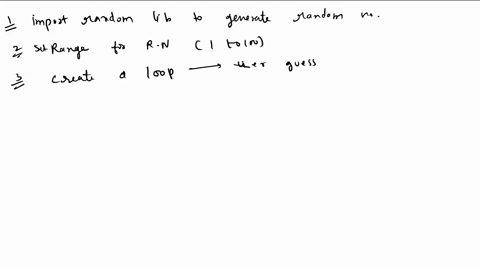 1 import random lib to generate random no.
2 set Range for R.N ( 1 to 100)
3 create a loop → user guess